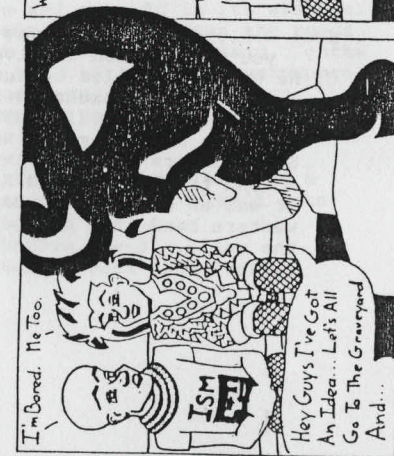 I'm Bored. Me Too.
ISM
Hey Guys I've Got
An Idea... Let's All
Go To The Graveyard
And...